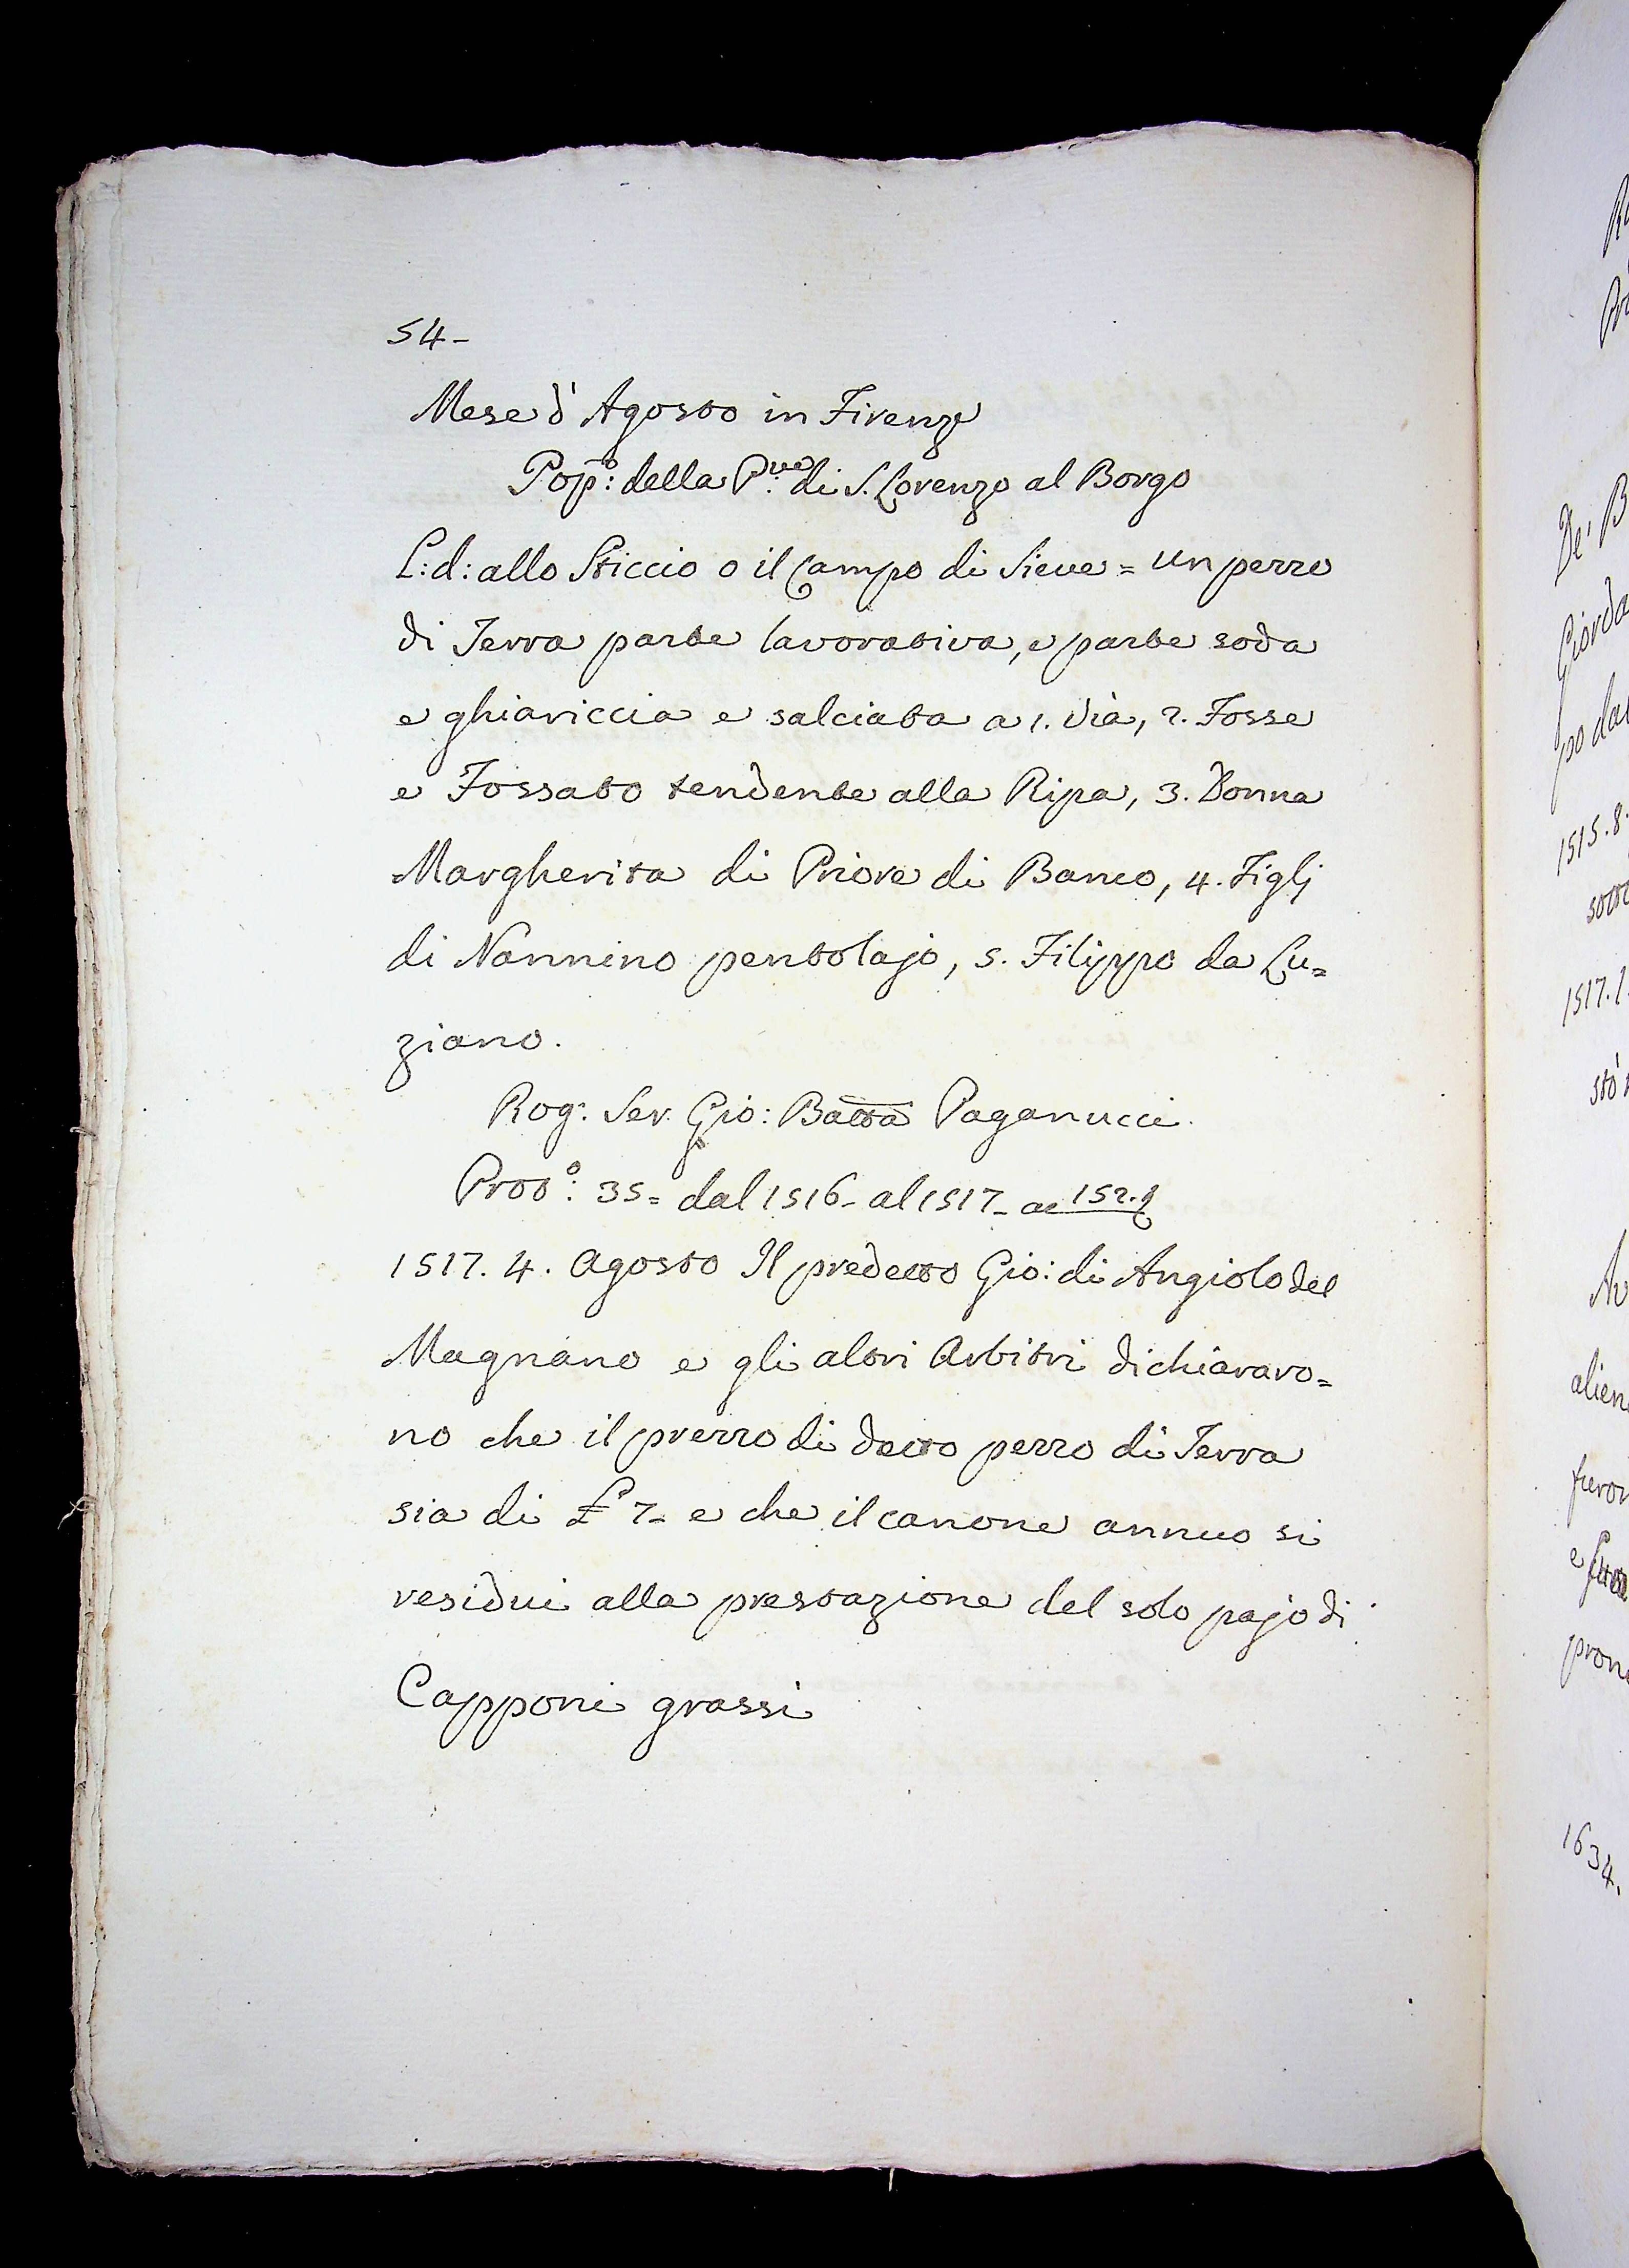 54-
Mese d'Agosto in Firenze
Pop.o: della P.ve di S. Lorenzo al Borgo
L: d: allo Sticcio o il Campo di Sieve = un pezzo
di Terra parte lavorativa, e parte soda
e ghiariccia e salciata a 1. via, 2. Fosse
e Fossato tendente alla Ripa, 3. Donna
Margherita di Priore di Banco, 4. Figlj
di Nannino pentolajo, 5. Filippo da Lu=
ziano.
Rog: Ser Gio: Batta Paganucci.
Prot.o: 35= dal 1516- al 1517- ac 152.
1517. 4. Agosto Il predetto Gio: di Angiolo del
Magnano e gli altri Arbitri dichiararo=
no che il prezzo di detto pezzo di Terra
sia di £ 7- e che il canone annuo si
residui alla prestazione del solo pajo di
Capponi grassi
De' B
1515. 8.
1517. 1.
alien
1634.